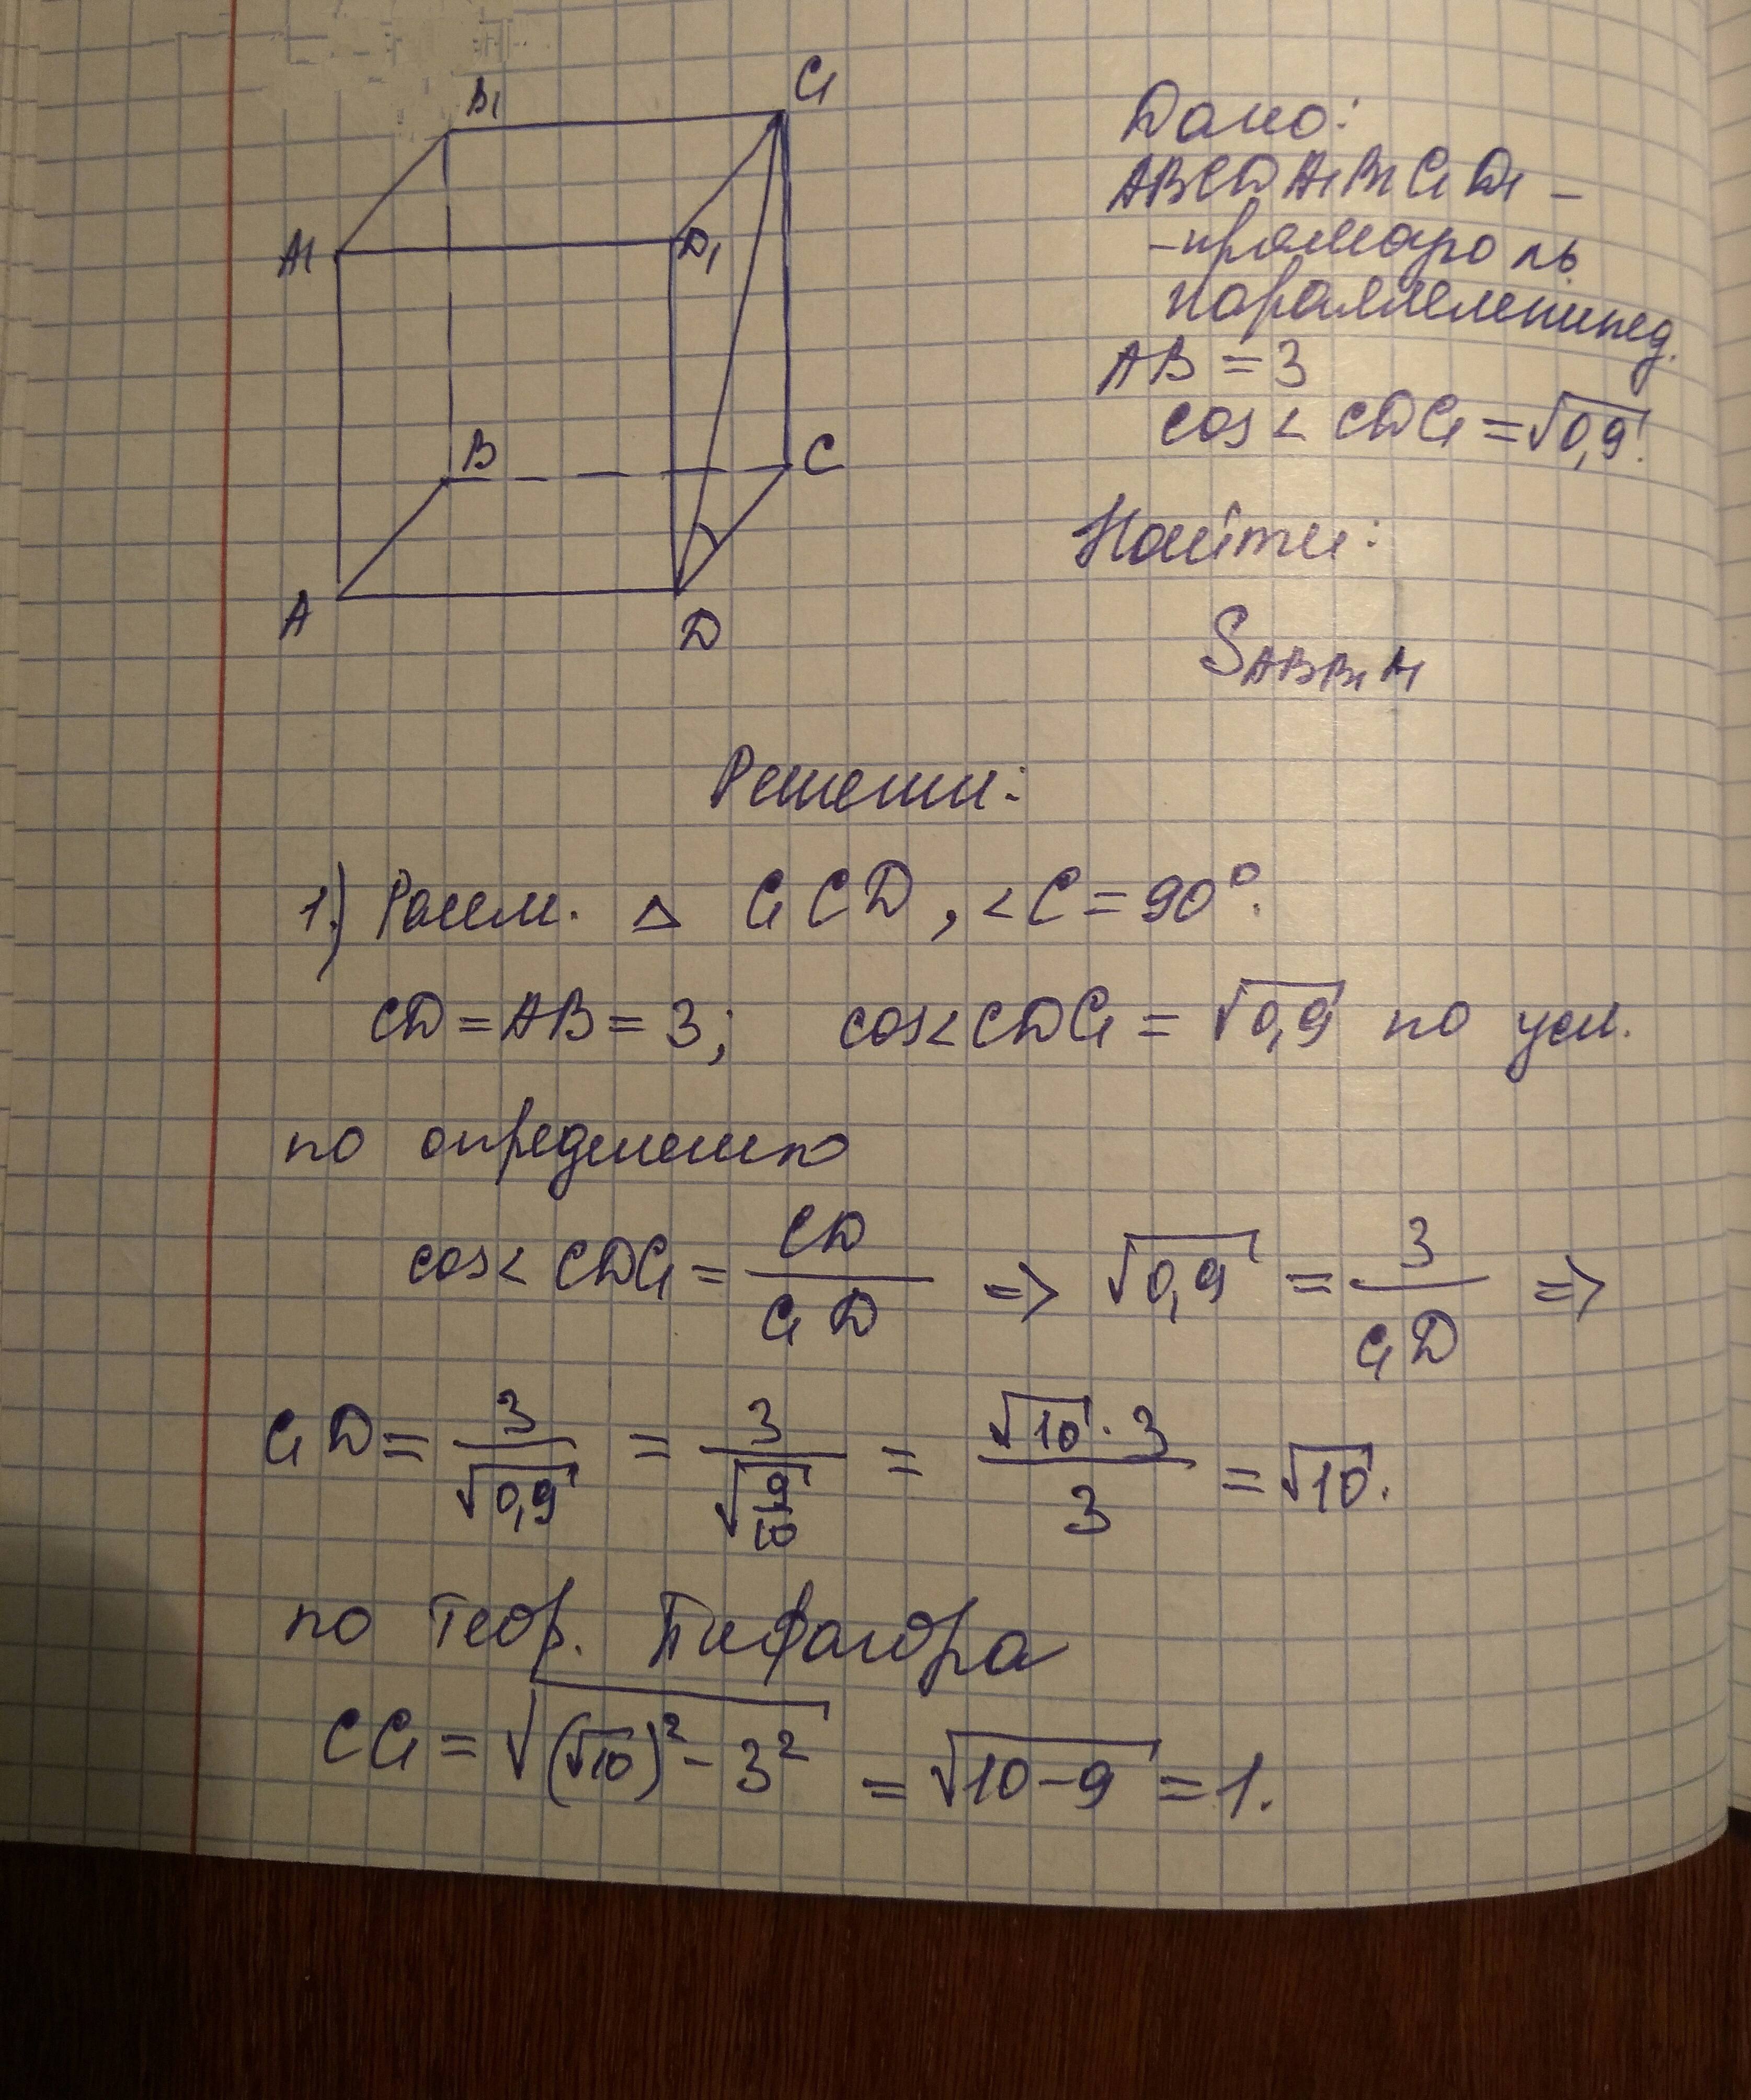 B₁
C₁
A₁
D₁
B
C
A
D
Дано:
ABCDA₁B₁C₁D₁ –
параллелепипед.
AB = 3
cos∠CDC₁ = √0,9.
Найти:
S_ABB₁A₁
Решени:
1.) Рассм. △ C₁CD, ∠C = 90°.
CD = AB = 3; cos∠CDC₁ = √0,9 по усл.
по определению
cos∠CDC₁ = CD/C₁D => √0,9 = 3/C₁D =>
C₁D = 3/√0,9 = 3/√(9/10) = (√10 · 3)/3 = √10.
по теор. Пифагора
CC₁ = √((√10)² - 3²) = √(10-9) = 1.